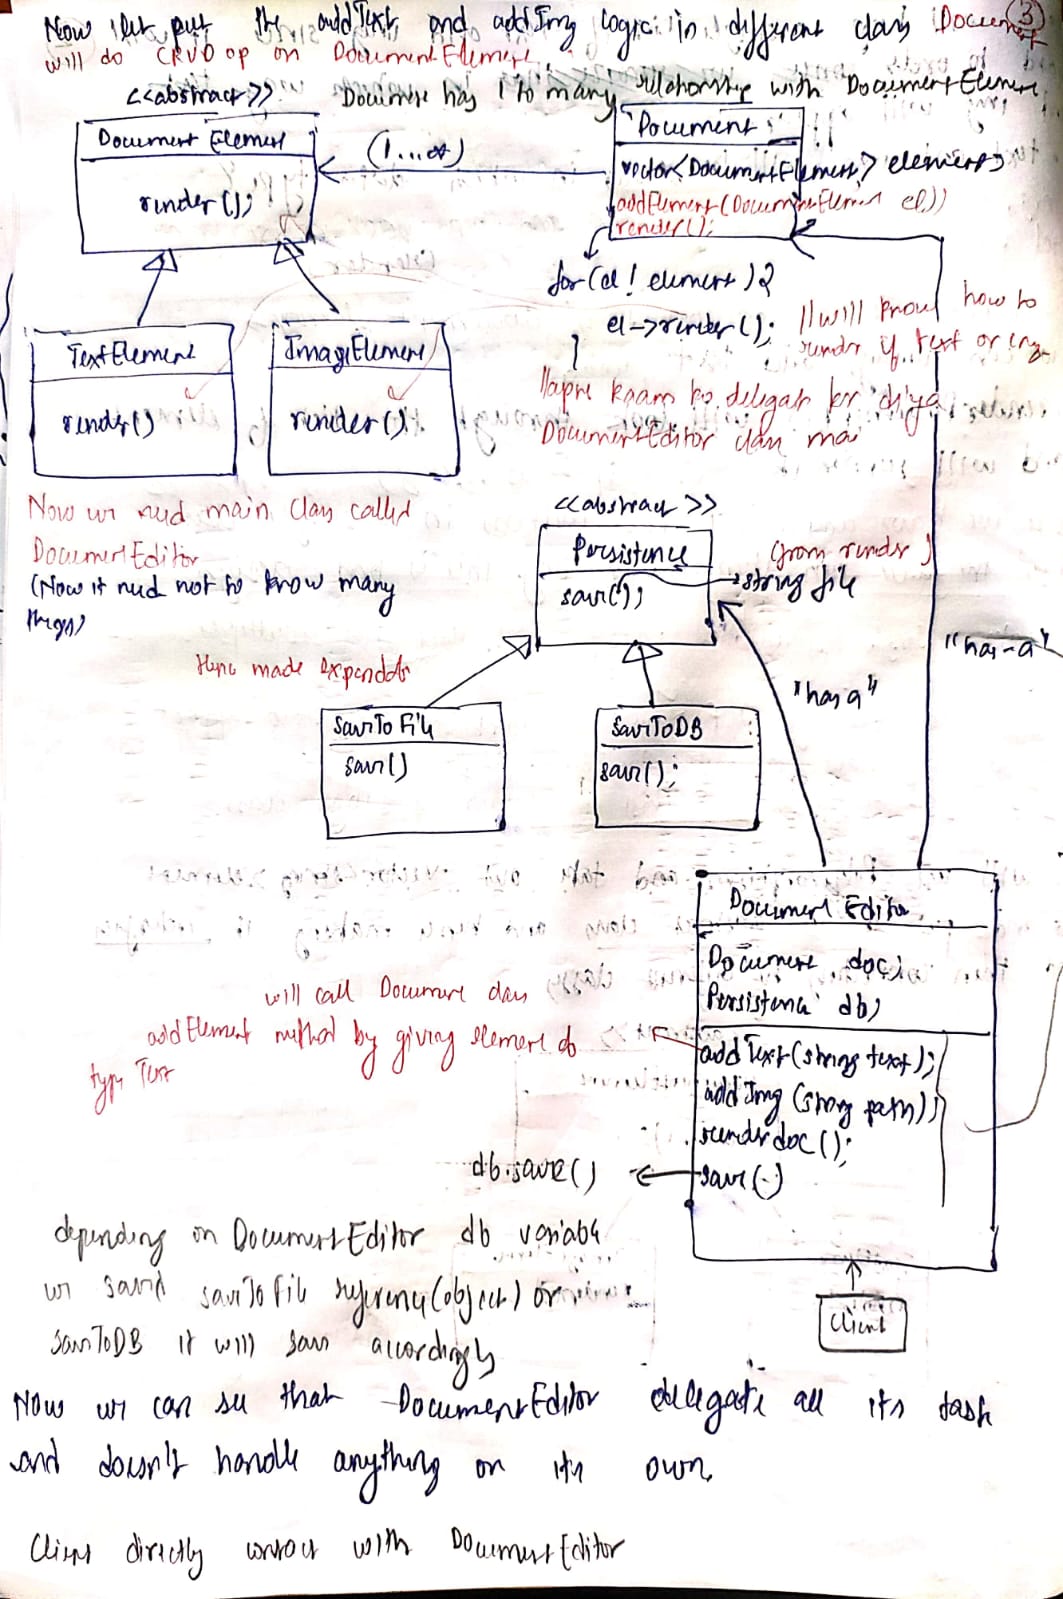 Now let put the addText and addImg logic in different class Document
will do CRUD op on DocumentElement
③
<<abstract>>
Document has 1 to many relationship with DocumentElement
Document Element
render();
(1...*)
Document
vector<DocumentElement> elements
addElement(DocumentElement el))
render();
for(el : element){
el->render();
}
//will know how to
render if text or img
TextElement
render()
ImageElement
render()
//apne kaam ko delegate kr diya
DocumentEditor class mai
Now we need main class called
DocumentEditor
(Now it need not to know many
things)
<<abstract>>
Persistence
save();
(from render)
string file
"has-a"
"has a"
Hence made expandable
SaveToFile
save()
SaveToDB
save();
Document Editor
Document doc;
Persistence db;
addText(string text);
addImg(string path);
renderdoc();
save(-)
will call Document class
addElement method by giving element do
type Text
db.save()
depending on DocumentEditor db variable
we saved saveToFile reference(object) or
saveToDB it will save accordingly
Client
Now we can see that DocumentEditor delegate all its task
and doesn't handle anything on its own.
Client directly with DocumentEditor